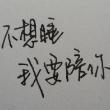 不想睡
我要陪你